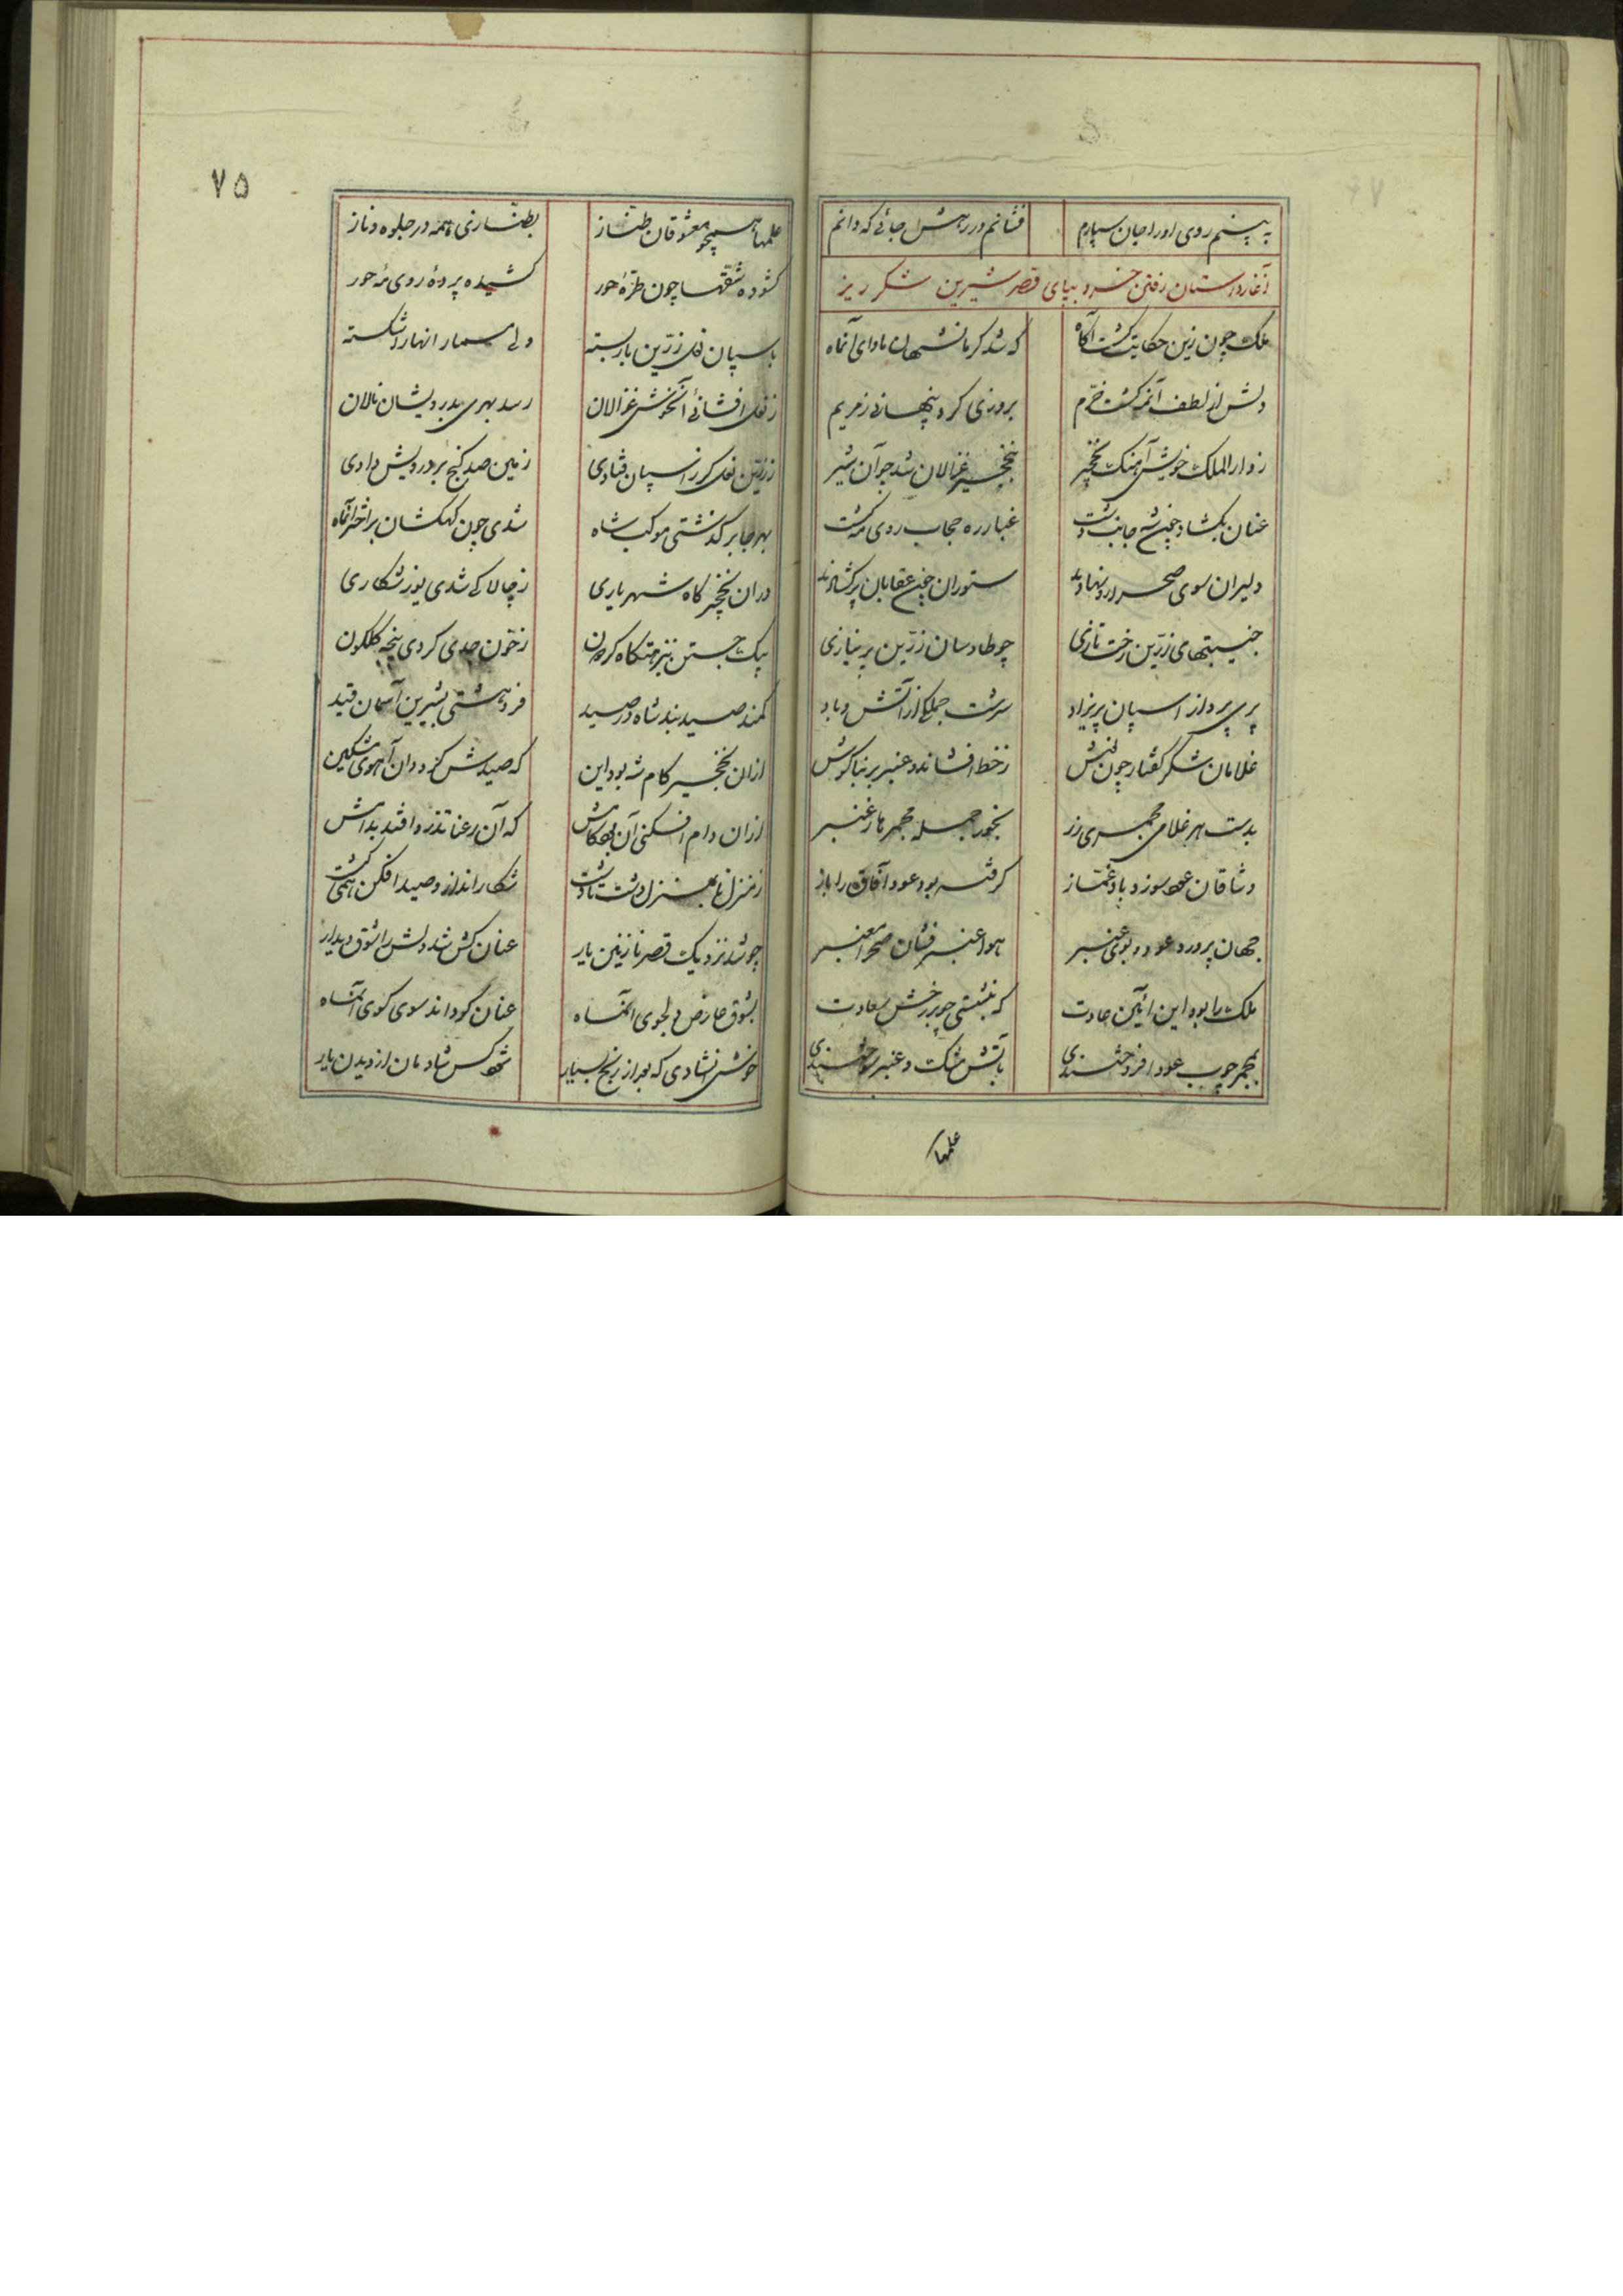 به بینم روی او را جان سپارم فشانم در رهش جائی که دانم
آغاز داستان رفتن خسرو بپای قصر شیرین شکر ریز
ملک چون زین حکایت گشت آگاه که شد کرمانشهان ماوای آنماه
دلش از لطف آنمه گشت خرم بروزی کرد پنهانی ز مریم
ز دار الملک خویش آهنک نخجیر بنخجیر غزالان شد جوان شیر
عنان بکشاد جانب دشت غبار ره حجاب روی مه گشت
دلیران سوی صحرا رو نهادند ستوران عقابان پر کشادند
جنیبتهای زرین رخت تازی چو طاوسان زرین پر ببازی
پری پرواز اسپان پریزاد سرشت جملکی از آتش و باد
غلامان شکر کفتار چون نوش ز خط افشانده عنبر بر بناکوش
بدست هر غلامی مجمری زر بخور جمله مجمرها ز عنبر
وشاقان عود سوز و باد غماز کرفته بود عود آفاق را باز
جهان پرورد عود و بوی عنبر هوا عنبر فشان صحرا معنبر
ملک را بود این آئین عادت که بنشستی چو بر رخش سعادت
بمجمر چوب عود افروختندی بآتش مشک و عنبر سوختندی
علمها
۷۵
علمها همچو معشوقان طناز بطنازی همه در جلوه و ناز
کشوده شقها چون طره حور کشیده پرده روی مه حور
باسپان نعل زرین بار بسته ولی مسمار انها رو شکسته
ز نعل افشانی آنخوش غزالان رسد بهری بدرویشان نالان
ز زرین نعل کز اسپان فتادی زمین صد کنج بر درویش دادی
بهر جا بر کذشتی موکب شاه شدی چون کهکشان بر اختر آنماه
دران نخچیر کاه شهریاری ز چالاکی شدی یوز شکاری
بیک جستن کردون ز خون جدی کردی پنجه کلکون
کمند صید بند شاه در صید فرو هشتی بشیرین آسمان قید
ازان نخچیر کام شه بود این که صیدش کردد آن آهوی مشکین
ازان دام افکنی آن بود کامش که آن رعنا تذرو افتد بدامش
ز منزل تا بمنزل دشت تا دشت شکار انداز و صید افکن همی کشت
چو شد نزدیک قصر نازنین یار عنان کش شد دلش را شوق دیدار
بشوق عارض دلجوی آنماه عنان کرداند سوی کوی آنماه
خوش آنشادی که بعد از رنج بسیار شود کس شادمان از دیدن یار